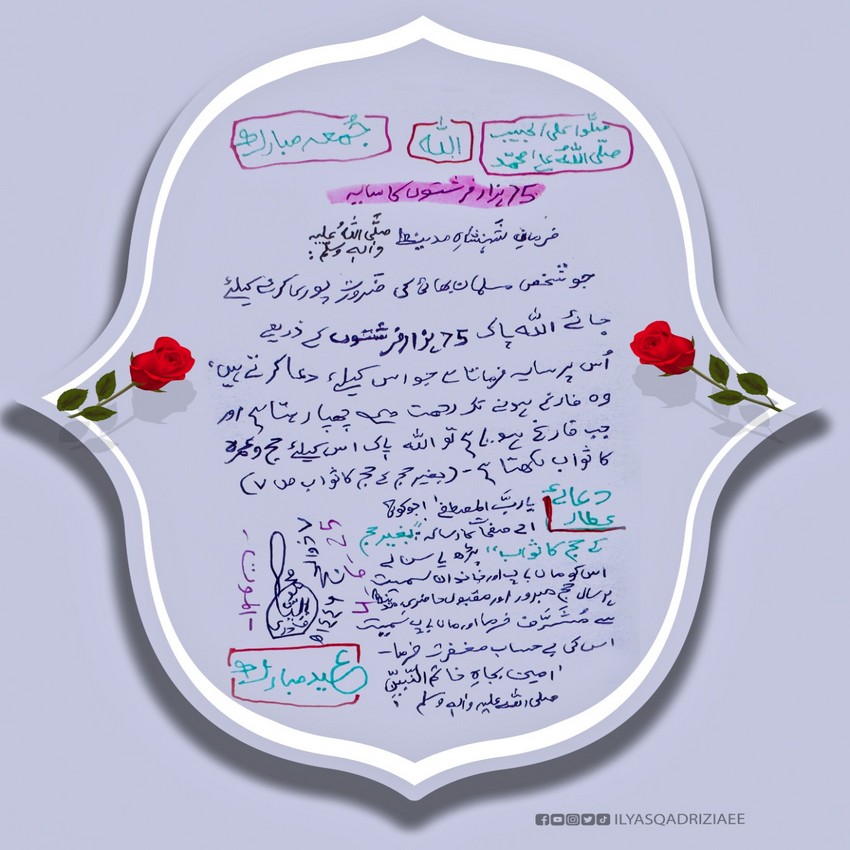 صَلُّوا علی الحبیب
صلّی اللّٰہُ علٰی محمّد
اللّٰہ
جُمعہ مبارک
75 ہزار فرشتوں کا سایہ
فرمانِ شَہنشاہِ مدینہ صلَّی اللّٰہُ علیہ واٰلہٖ وسلَّم:
جو شخص مسلمان بھائی کی ضرورت پوری کرنے کیلئے
جائے اللّٰہ پاک 75 ہزار فرشتوں کے ذریعے
اُس پر سایہ فرماتا ہے جو اس کیلئے دعا کرتے ہیں،
وہ فارغ ہونے تک رحمت میں چھپا رہتا ہے اور
جب فارغ ہو جاتا ہے تو اللہ پاک اس کیلئے حج و عمرہ
کا ثواب لکھتا ہے۔ (بغیر حج کے حج کا ثواب ص ۷)
دعائے
عطار
یا ربَّ المصطفٰے! جو کوئی
صفحات کا رسالہ "بغیر حج
کے حج کا ثواب" پڑھ یا سن لے
اس کو ماں باپ اور خاندان سمیت
ہر سال حجِ مبرور اور مقبول حاضریِ مدینہ
سے مُشَرَّف فرما اور ماں باپ سمیت
اس کی بے حساب مغفرت فرما۔
اٰمین بجاہِ خاتمِ النَّبیّٖن
صلی اللّٰہ علیہ واٰلہٖ وسلم
۔الموت۔
عید مبارک
ILYASQADRIZIAEE